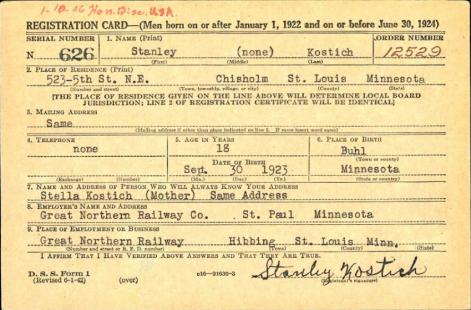 1-10-46 Hon. Disc. USA.
REGISTRATION CARD—(Men born on or after January 1, 1922 and on or before June 30, 1924)
SERIAL NUMBER 1. NAME (Print) ORDER NUMBER
N 626 Stanley (none) Kostich 12529
(First) (Middle) (Last)
2. PLACE OF RESIDENCE (Print)
523-5th St. N.E. Chisholm St. Louis Minnesota
(Number and street) (Town, township, village, or city) (County) (State)
[THE PLACE OF RESIDENCE GIVEN ON THE LINE ABOVE WILL DETERMINE LOCAL BOARD
JURISDICTION; LINE 2 OF REGISTRATION CERTIFICATE WILL BE IDENTICAL]
3. MAILING ADDRESS
Same
(Mailing address if other than place indicated on line 2. If same insert word same)
4. TELEPHONE 5. AGE IN YEARS 6. PLACE OF BIRTH
none 18 Buhl
DATE OF BIRTH (Town or county)
Sept. 30 1923 Minnesota
(Exchange) (Number) (Mo.) (Day) (Yr.) (State or country)
7. NAME AND ADDRESS OF PERSON WHO WILL ALWAYS KNOW YOUR ADDRESS
Stella Kostich (Mother) Same Address
8. EMPLOYER'S NAME AND ADDRESS
Great Northern Railway Co. St. Paul Minnesota
9. PLACE OF EMPLOYMENT OR BUSINESS
Great Northern Railway Hibbing St. Louis Minn.
(Number and street or R. F. D. number) (Town) (County) (State)
I AFFIRM THAT I HAVE VERIFIED ABOVE ANSWERS AND THAT THEY ARE TRUE.
D. S. S. Form 1 Stanley Kostich
(Revised 6-1-42) (over) (Registrant's signature)